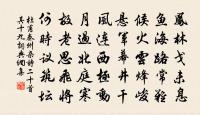 鳳林戈未息
魚海路常難
候火雲烽峻
懸軍幕井幹
風連西極動
月過北庭寒
故老思飛將
何時議筑壇
杜甫秦州杂詩二十首
其十九詞典網集